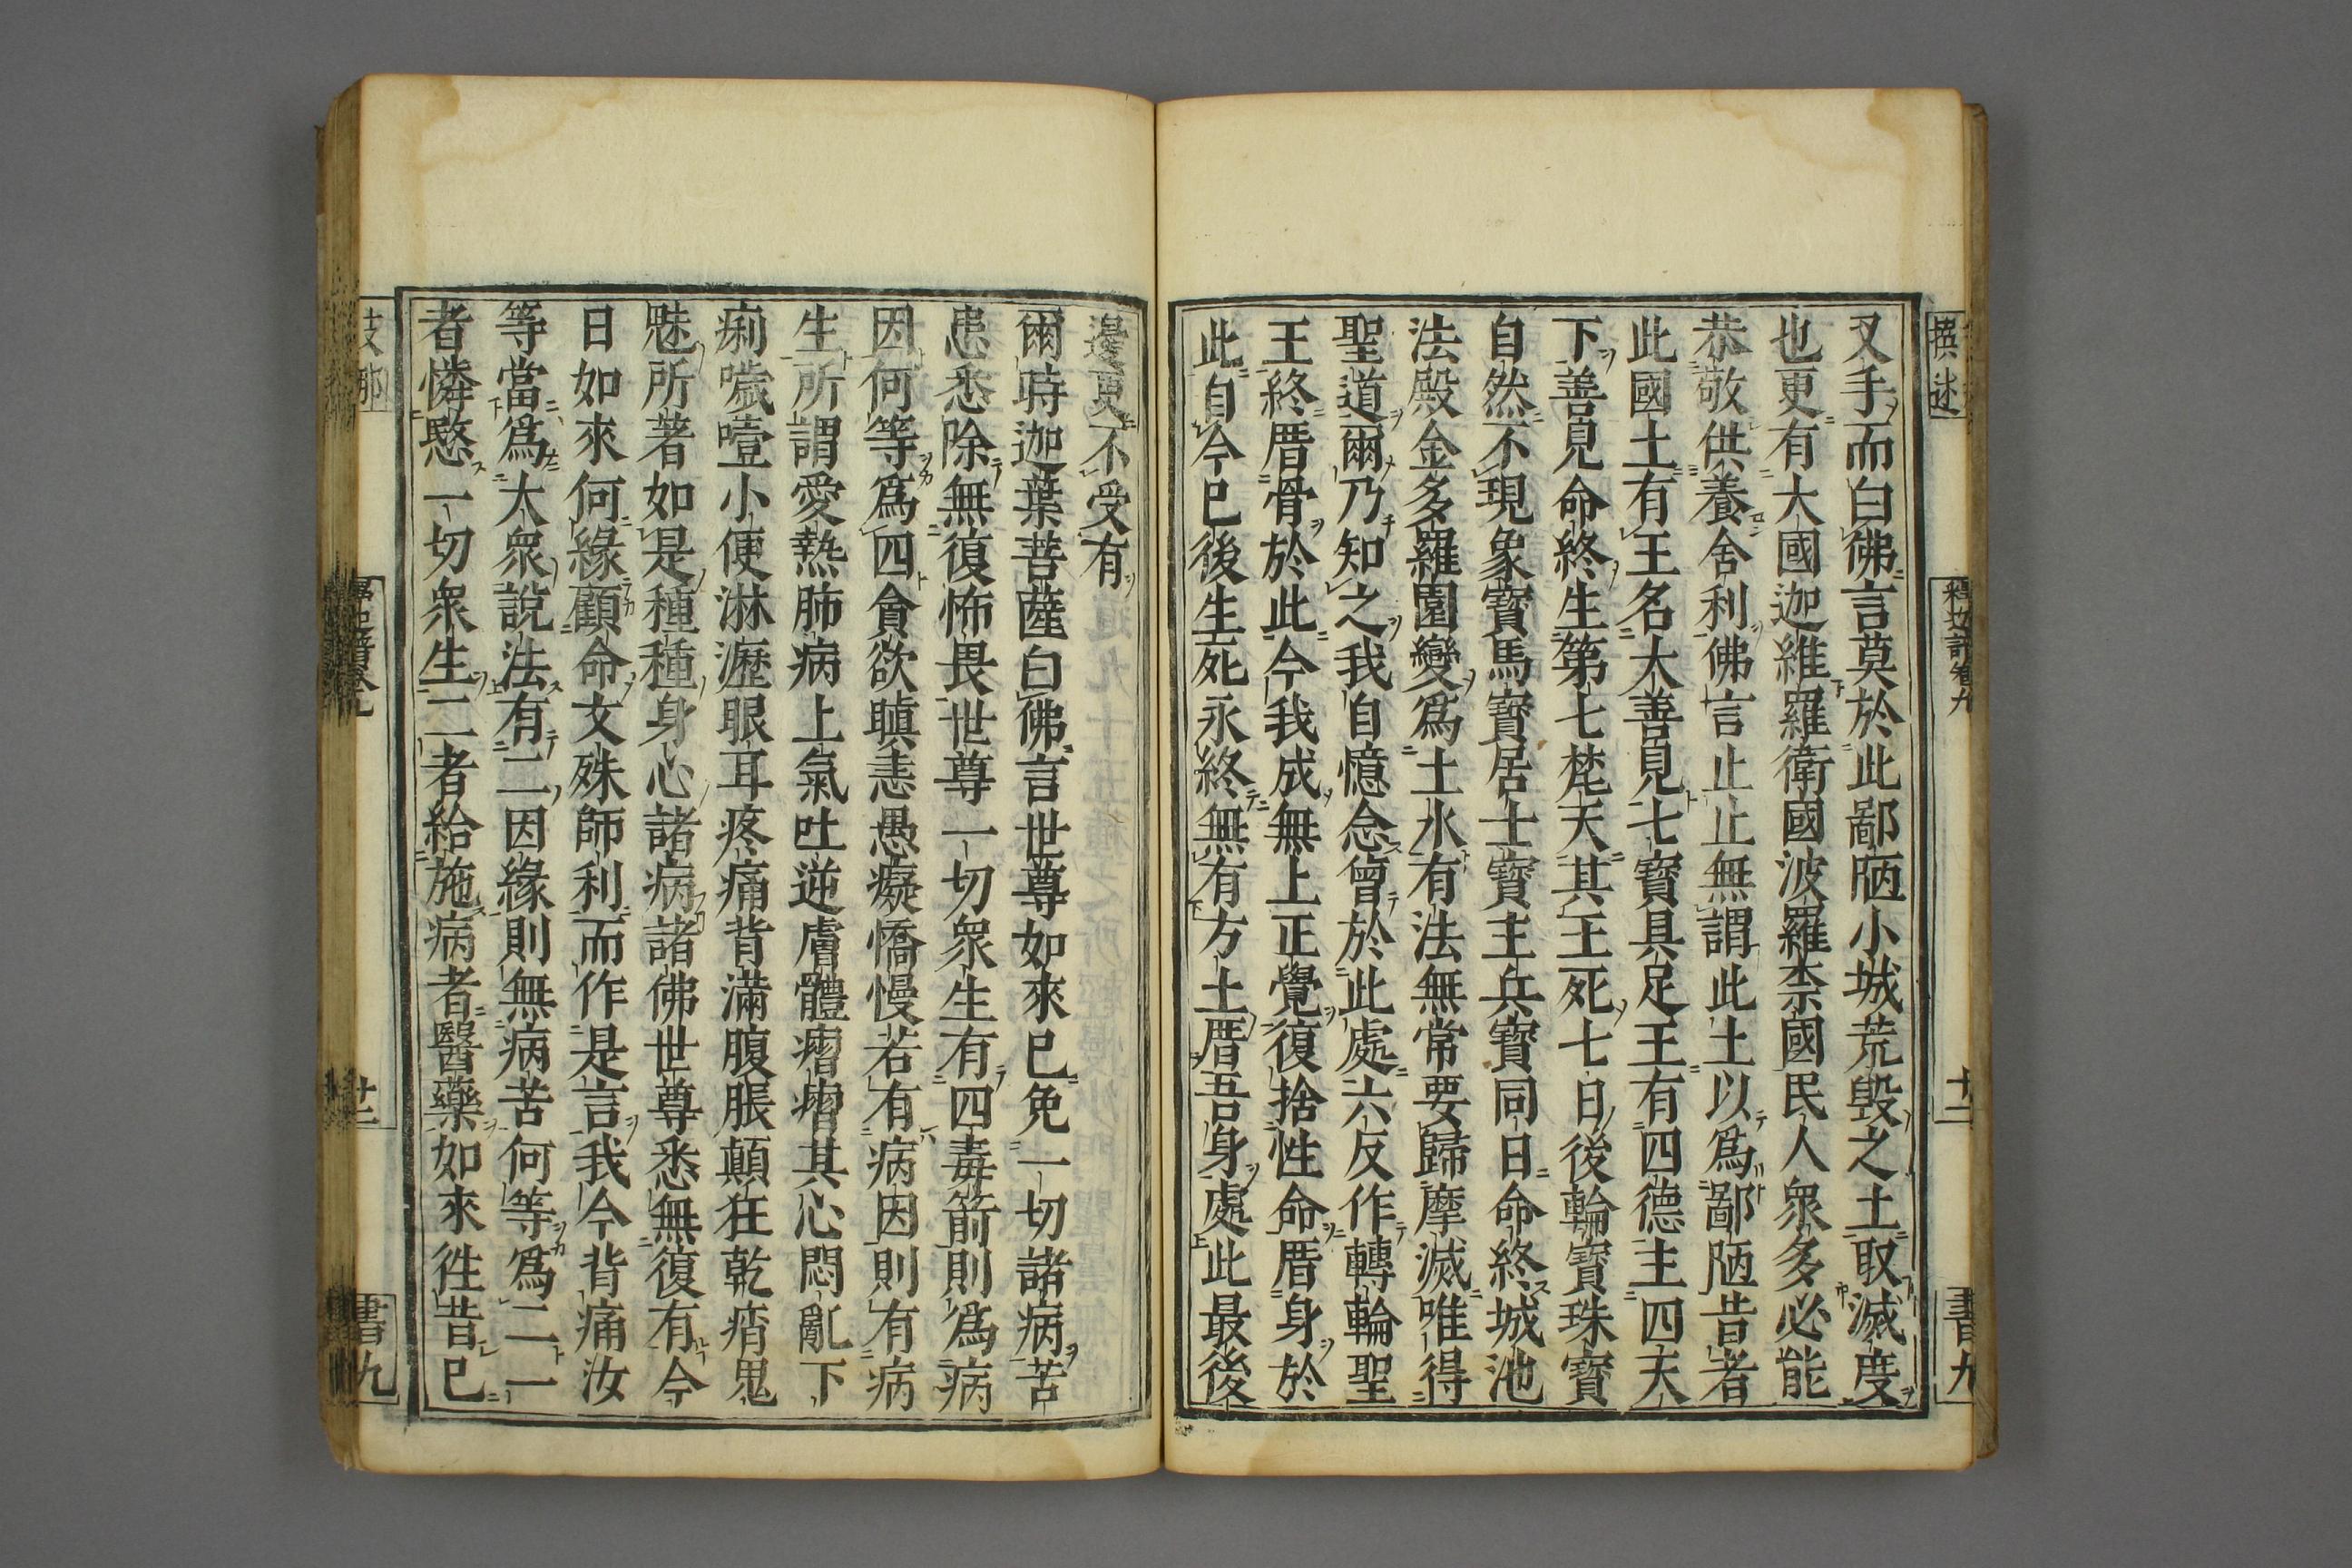 叉手而白佛言莫於此鄙陋小城荒毀之土取滅度
也更有大國迦維羅衛國波羅柰國民人衆多必能
恭敬供養舍利佛言止止無謂此土以爲鄙陋昔者
此國土有王名大善見七寶具足王有四德主四天
下善見命終生第七梵天其王死七日後輪寶珠寶
自然不現象寶馬寶居士寶主兵寶同日命終城池
法殿金多羅園變爲土水有法無常要歸摩滅唯得
聖道爾乃知之我自憶念曾於此處六反作轉輪聖
王終厝骨於此今我成無上正覺復捨性命厝身於
此自今已後生死永終無有方土厝吾身處此最後
邊更不受有
爾時迦葉菩薩白佛言世尊如來已免一切諸病苦
患悉除無復怖畏世尊一切衆生有四毒箭則爲病
因何等爲四貪欲瞋恚愚癡憍慢若有病因則有病
生所謂愛熱肺病上氣吐逆膚體瘡瘡其心悶亂下
痢噦噎小便淋瀝眼耳疼痛背滿腹脹顛狂乾痟鬼
魅所著如是種種身心諸病諸佛世尊悉無復有今
日如來何緣顧命文殊師利而作是言我今背痛汝
等當爲大衆說法有二因緣則無病苦何等爲二一
者憐愍一切衆生二者給施病者醫藥如來往昔已
撰述
釋迦譜卷九
十二
書九
支那
書九